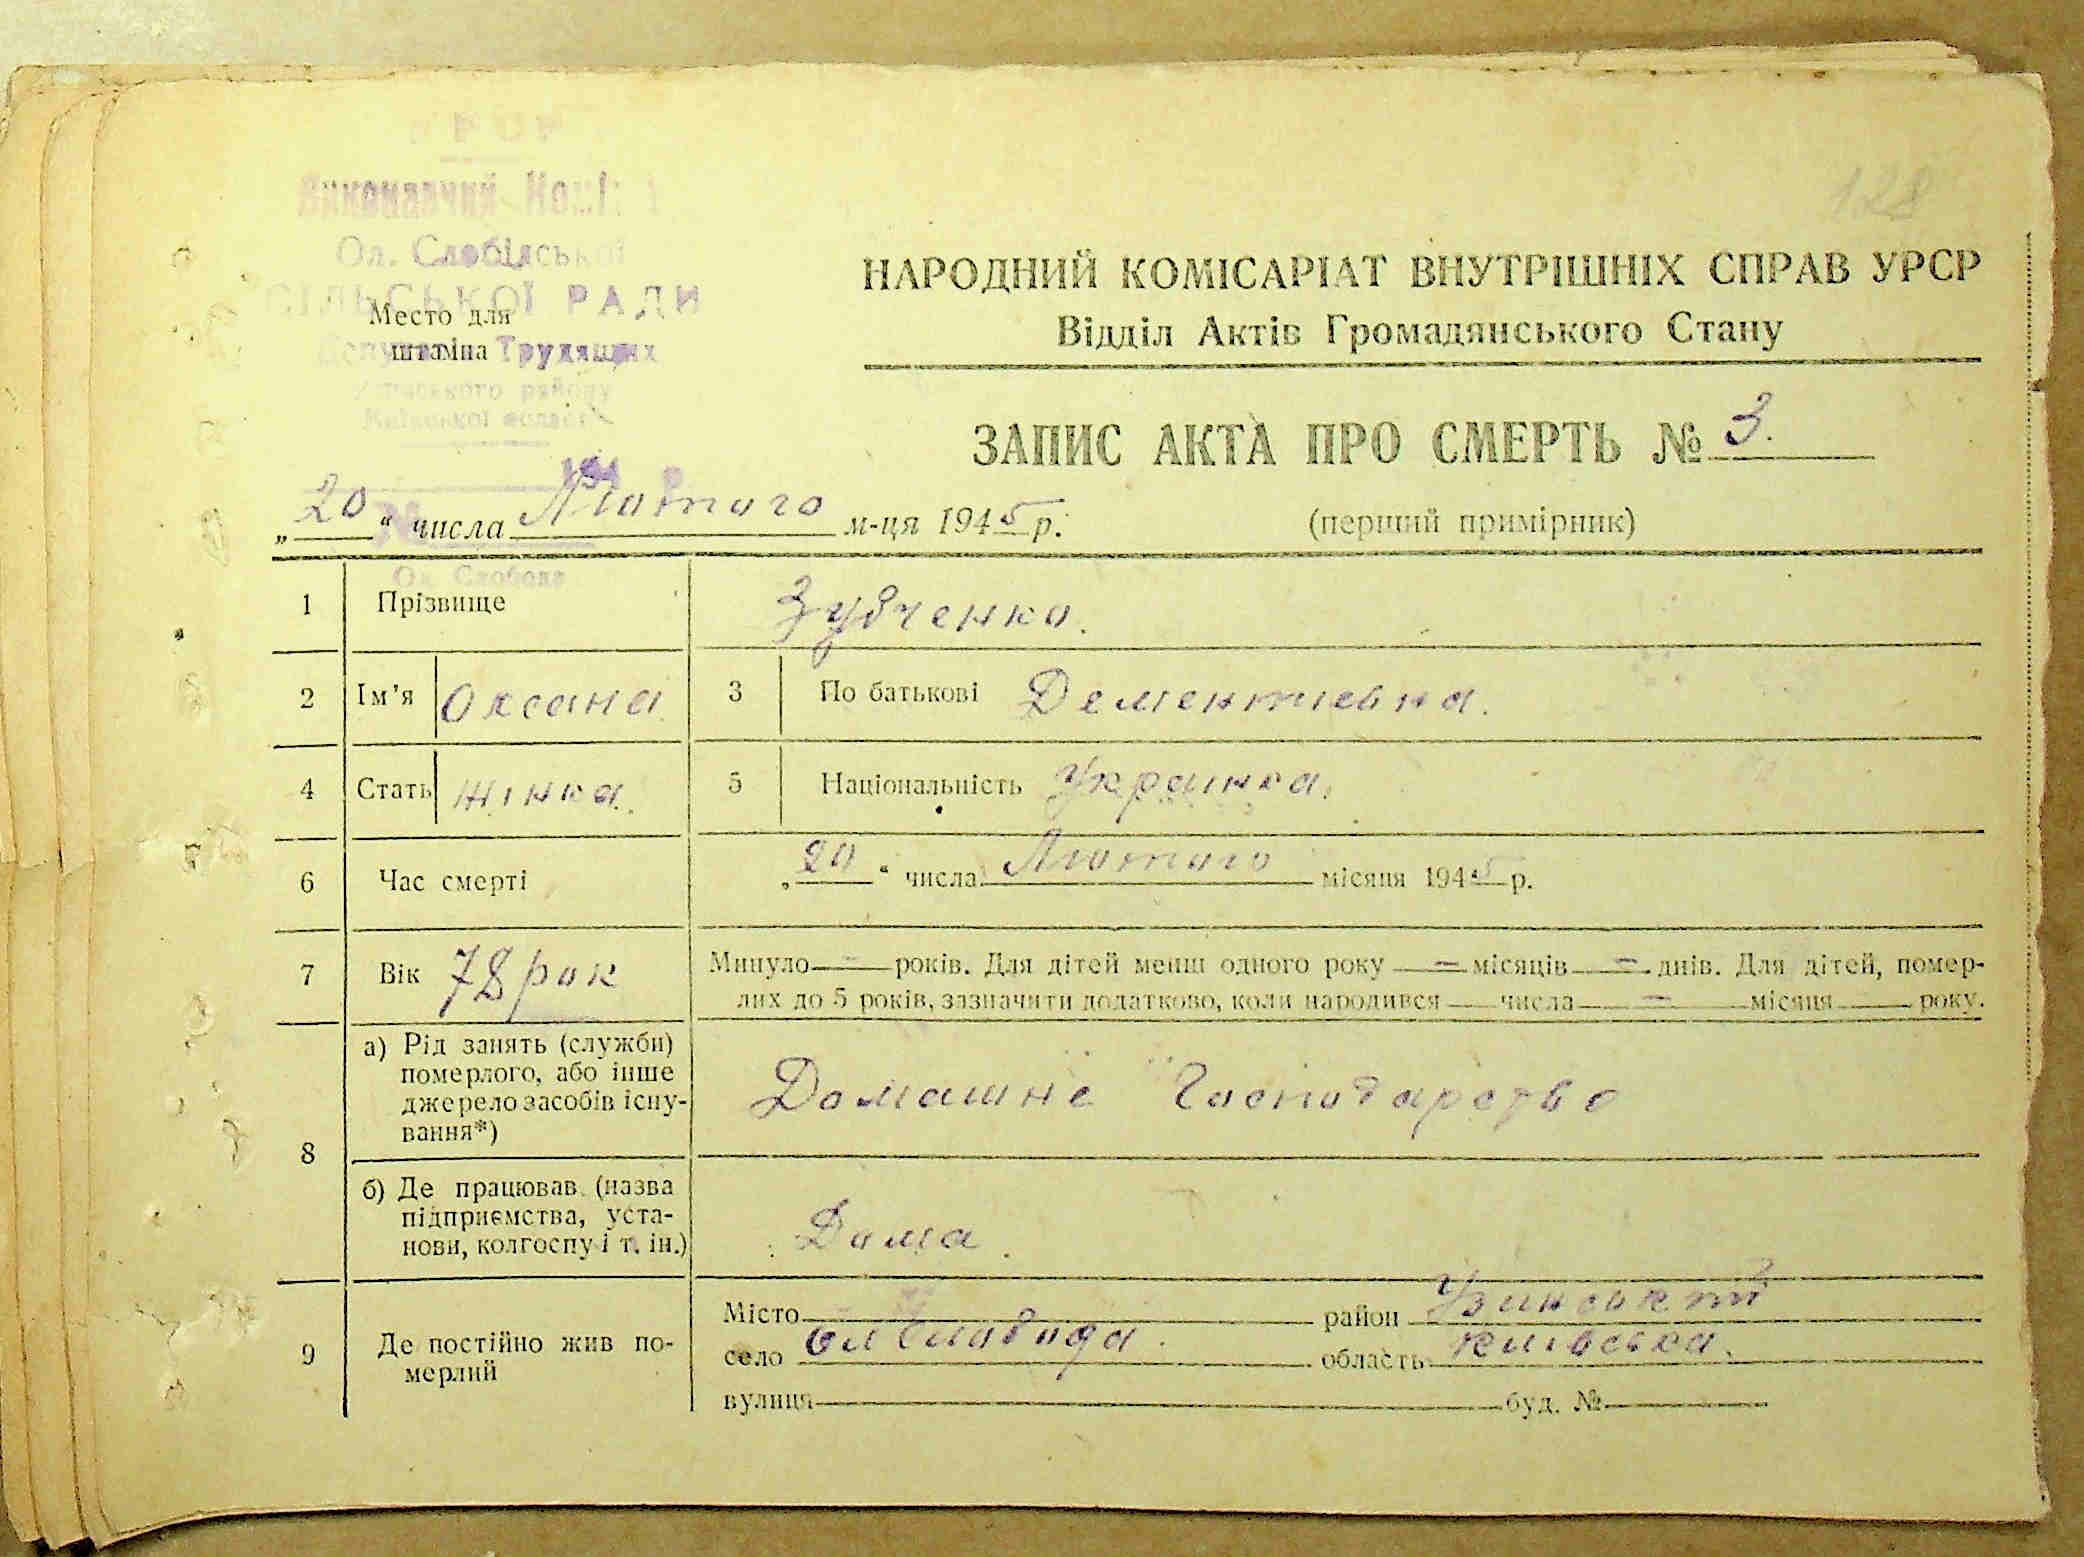 УРСР
Виконавчий Коміт
Ол. Слобідської
СІЛЬСЬКОЇ РАДИ
Депутатів Трудящих
Узинського району
Київської області
Место для
штампа
128
НАРОДНИЙ КОМІСАРІАТ ВНУТРІШНІХ СПРАВ УРСР
Відділ Актів Громадянського Стану
ЗАПИС АКТА ПРО СМЕРТЬ № 3.
(перший примірник)
194 р.
„20“ числа Лютого м-ця 1945 р.
№
Ол. Слобода
1 Прізвище Зубченко.
2 Ім’я Оксана 3 По батькові Дементиевна.
4 Стать жінка. 5 Національність Українка.
6 Час смерті „20“ числа Лютого місяця 1945 р.
7 Вік 78 рок Минуло — років. Для дітей менш одного року — місяців — днів. Для дітей, помер-
лих до 5 років, зазначити додатково, коли народився — числа — місяця — року.
8 а) Рід занять (служби)
померлого, або інше
джерело засобів існу-
вання*)
Домашнє Господарство
б) Де працював (назва
підприємства, уста-
нови, колгоспу і т. ін.)
Дома
9 Де постійно жив по-
мерлий
Місто — район Узинський
село Ол Слобода. область Київська.
вулиця буд. №